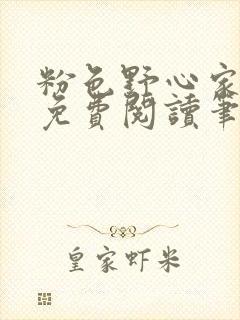 粉色野心家
免費閱讀筆
皇家虾米